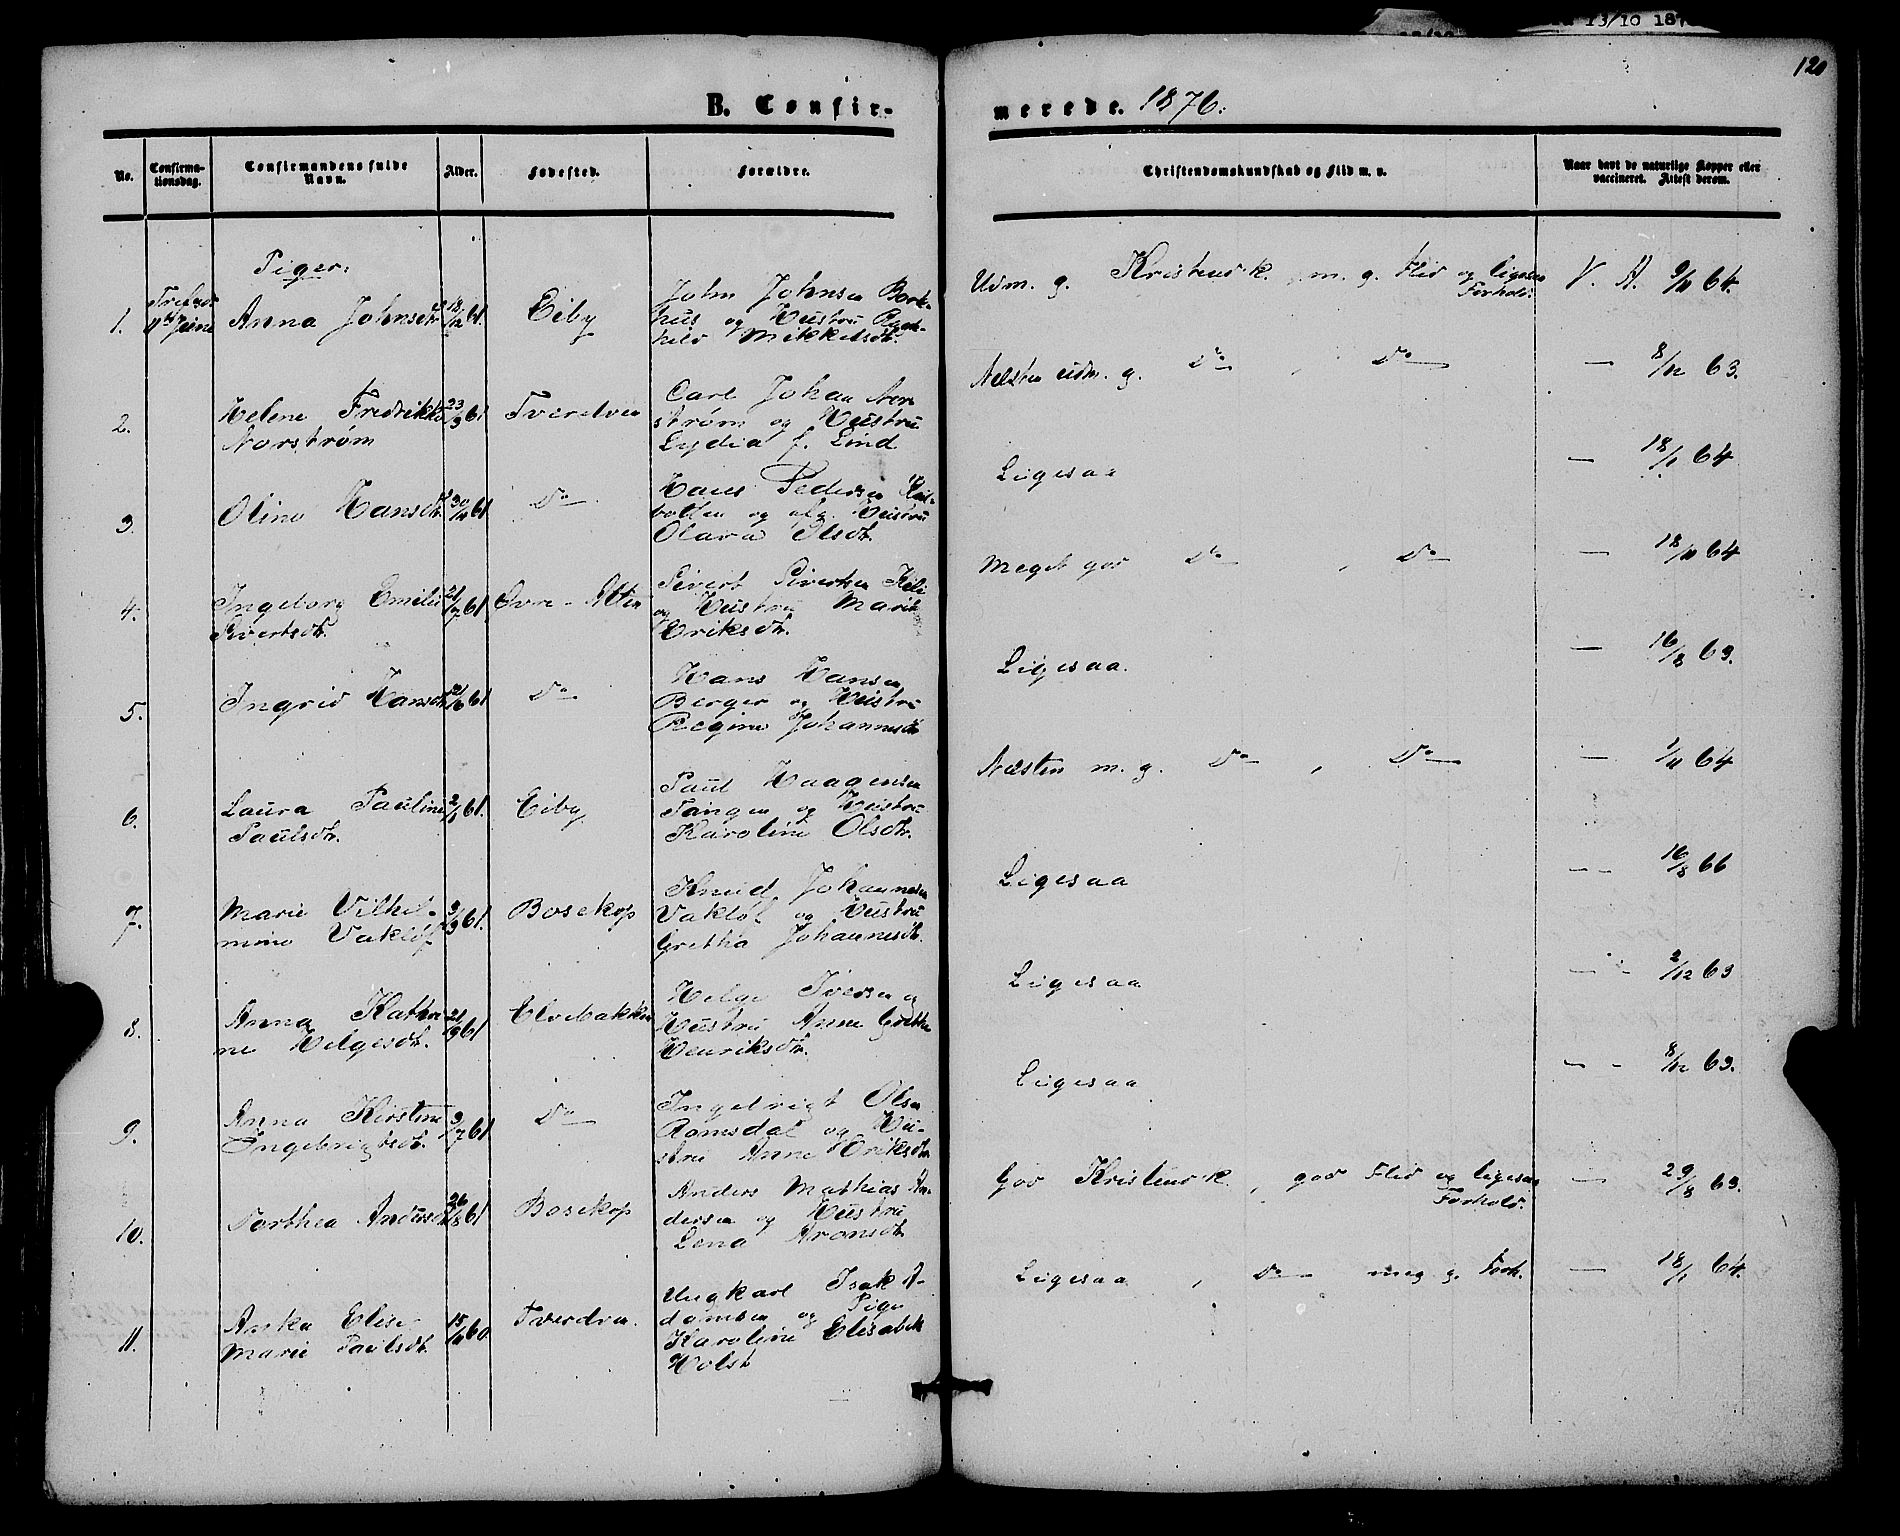 13/10 187
120
B. Confir-
merede. 1876.
No.
Confirma-
tionsdag.
Confirmandens fulde
Navn.
Alder.
Fødested.
Forældre.
Christendomskundskab og Flid m. v.
Naar havt de naturlige Kopper eller
vaccineret. Attest derom.
Piger:
1.
11te Juni
Anna Johnsdtr.
18/12 61.
Eiby
John Johnsen Bork-
hus og Hustru Ragn-
hild Mikkelsdtr.
Udm. g. Kristendk. m. g. Flid og ligesaa
Forhold.
V. A. 9/11 64.
2.
Helene Fredrikke
Norstrøm
23/3 61
Tverelven
Carl Johan Nor
strøm og Hustru
Lydia f. Lind
Næsten udm. g. Do , Do
— 8/12 63.
3.
Oline Hansdtr.
61
Do
Hans Pedersen
og Hustru
Olava Olsdtr.
Ligesaa
— 18/1 64
4.
Ingeborg Emilie
Sivertsdtr.
61
Øvre-Alten
Sivert Sivertsen
og Hustru Marit
Eriksdtr.
Meget god Do , Do
— 18/11 64
5.
Ingrid Hansdtr.
61
Do
Hans Hansen
Berger og Hustru
Regine Johannesdtr
Ligesaa.
— 16/8 63.
6.
Laura Pauline
Paulsdtr.
2/1 61.
Eiby
Paul Haagensen
Tangen og Hustru
Karoline Olsdtr.
Næsten m. g. Do , Do
— 1/11 64
7.
Marie Vilhel-
mine Vakløf
61.
Bosekop
Knud Johannesen
Vakløf og Hustru
Gretha Johannesdtr.
Ligesaa
-- 16/8 66
8.
Anna Kathri
ne Helgesdtr.
21/9 61
Elvebakken
Helge Iversen og
Hustru Anne Grethe
Henriksdtr.
Ligesaa
— - 2/12 63
9.
Anna Kirstine
Ingebrigtsdtr.
9/7 61
Do
Ingebrigt Olsen
Romsdal og Hu-
stru Anne Eriksdtr.
Ligesaa
- - 8/12 63.
10.
Dorthea Andersdtr
26/8 61
Bosekop
Anders Mathias An-
dersen og Hustru
Lena Aronsdtr.
God Kristendk., god Flid og ligesaa
Forhold.
— 29/8 63.
11.
Anka Elise
Marie Paulsdtr.
15/11 60
Tverelven.
Ungkarl Isak A-
damsen og Pige
Karoline Elisabeth
Holst
Ligesaa , Do meg g. Forh.
— 18/1 64.